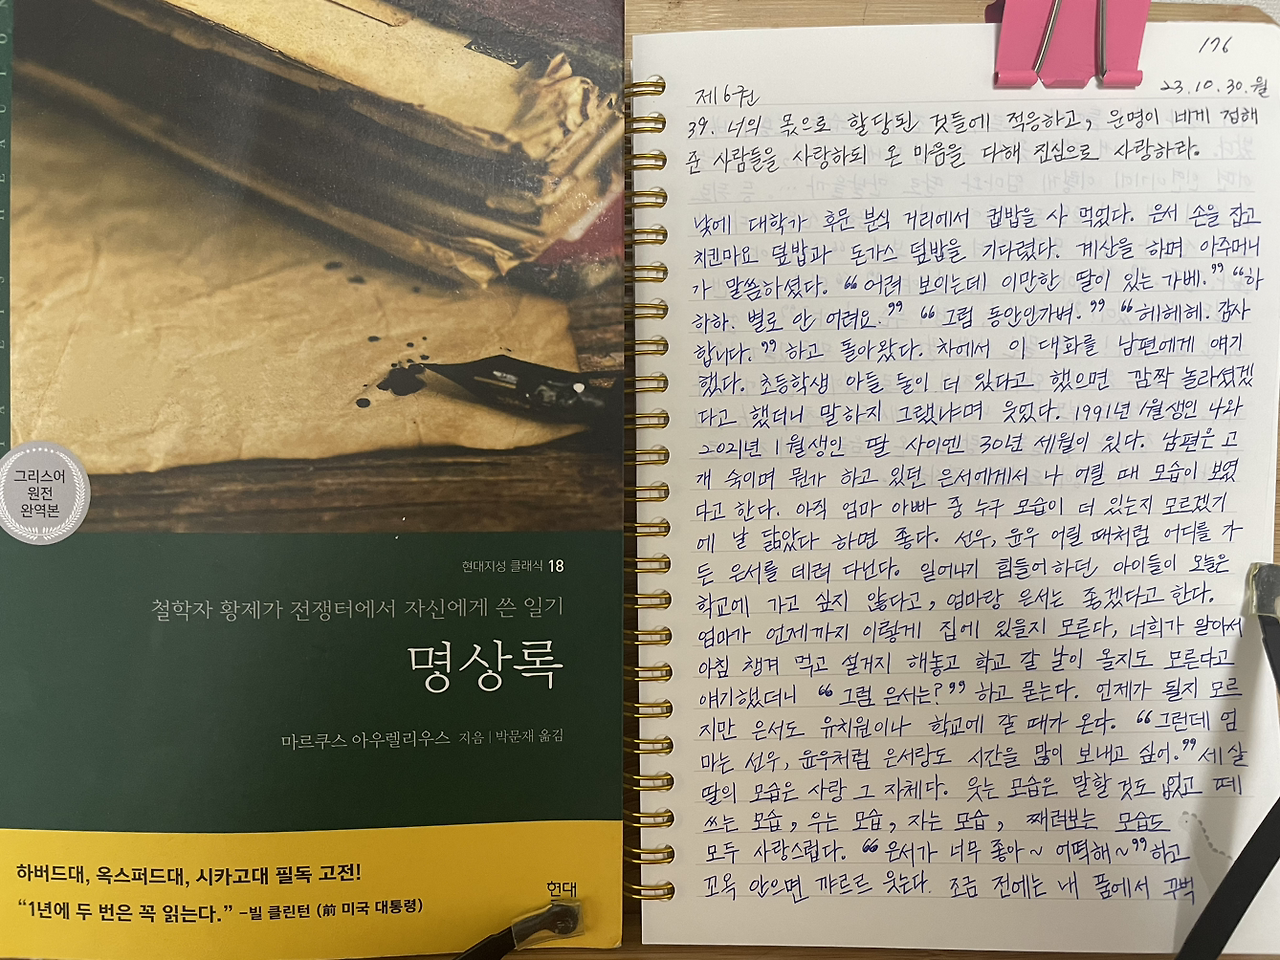 그리스어
원전
완역본
현대지성 클래식 18
철학자 황제가 전쟁터에서 자신에게 쓴 일기
명상록
마르쿠스 아우렐리우스 지음 | 박문재 옮김
하버드대, 옥스퍼드대, 시카고대 필독 고전!
“1년에 두 번은 꼭 읽는다.” –빌 클린턴 (前 미국 대통령)
현대
176
23.10.30.월
제6권
39. 너의 몫으로 할당된 것들에 적응하고, 운명이 네게 정해
준 사람들을 사랑하되 온 마음을 다해 진심으로 사랑하라.
낮에 대학가 후문 분식 거리에서 컵밥을 사 먹었다. 은서 손을 잡고
치킨마요 덮밥과 돈가스 덮밥을 기다렸다. 계산을 하며 아주머니
가 말씀하셨다. “어려 보이는데 이만한 딸이 있는가베.” “하
하하. 별로 안 어려요.” “그럼 동안인가벼.” “헤헤헤. 감사
합니다.” 하고 돌아왔다. 차에서 이 대화를 남편에게 얘기
했다. 초등학생 아들 둘이 더 있다고 했으면 깜짝 놀라셨겠
다고 했더니 말하지 그랬냐며 웃었다. 1991년 1월생인 나와
2021년 1월생인 딸 사이엔 30년 세월이 있다. 남편은 고
개 숙이며 뭔가 하고 있던 은서에게서 나 어릴 때 모습이 보였
다고 한다. 아직 엄마 아빠 중 누구 모습이 더 있는지 모르겠기
에 날 닮았다 하면 좋다. 선우, 윤우 어릴 때처럼 어디를 가
든 은서를 데려 다닌다. 일어나기 힘들어하던 아이들이 오늘은
학교에 가고 싶지 않다고, 엄마랑 은서는 좋겠다고 한다.
엄마가 언제까지 이렇게 집에 있을지 모른다, 너희가 알아서
아침 챙겨 먹고 설거지 해놓고 학교 갈 날이 올지도 모른다고
얘기했더니 “그럼 은서는?” 하고 묻는다. 언제가 될지 모르
지만 은서도 유치원이나 학교에 갈 때가 온다. “그런데 엄
마는 선우, 윤우처럼 은서랑도 시간을 많이 보내고 싶어.” 세 살
딸의 모습은 사랑 그 자체다. 웃는 모습은 말할 것도 없고 떼
쓰는 모습, 우는 모습, 자는 모습, 째려보는 모습도
모두 사랑스럽다. “은서가 너무 좋아~ 어떡해~” 하고
꼬옥 안으면 꺄르르 웃는다. 조금 전에는 내 품에서 꾸벅